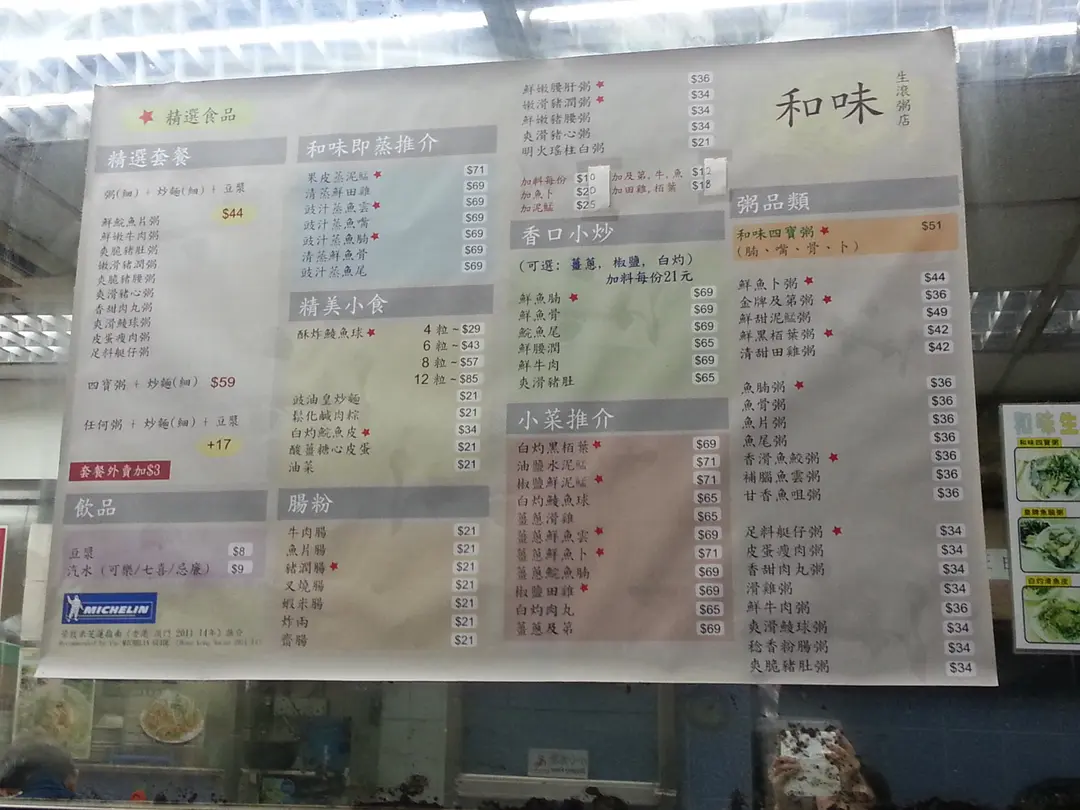 精選食品
精選套餐
粥(細) + 炒麵(細) + 豆漿
$44
鮮鯇魚片粥
鮮嫩牛肉粥
爽脆豬肚粥
嫩滑豬潤粥
爽脆豬腰粥
爽滑豬心粥
香甜肉丸粥
爽滑鯪球粥
皮蛋瘦肉粥
足料艇仔粥
四寶粥 + 炒麵(細) $59
任何粥 + 炒麵(細) + 豆漿
+17
套餐外賣加$3
飲品
豆漿 $8
汽水 (可樂/七喜/忌廉) $9
MICHELIN
和味即蒸推介
果皮蒸泥鯭 $71
清蒸鮮田雞 $69
豉汁蒸魚雲 $69
豉汁蒸魚嘴 $69
豉汁蒸魚腩 $69
清蒸鮮魚骨 $69
豉汁蒸魚尾 $69
精美小食
酥炸鯪魚球 4 粒~$29
6 粒~$43
8 粒~$57
12 粒~$85
豉油皇炒麵 $21
鬆化鹹肉粽 $21
白灼鯇魚皮 $34
酸薑糖心皮蛋 $21
油菜 $21
腸粉
牛肉腸 $21
魚片腸 $21
豬潤腸 $21
叉燒腸 $21
蝦米腸 $21
炸兩 $21
齋腸 $21
鮮嫩腰肝粥 $36
嫩滑豬潤粥 $34
鮮嫩豬腰粥 $34
爽滑豬心粥 $34
明火瑤柱白粥 $21
加料每份 $10 加及第,牛,魚
加魚卜 $20 加田雞,栢葉 $18
加泥鯭 $25
香口小炒
(可選: 薑蔥, 椒鹽, 白灼)
加料每份21元
鮮魚腩 $69
鮮魚骨 $69
鯇魚尾 $69
鮮腰潤 $65
鮮牛肉 $69
爽滑豬肚 $65
小菜推介
白灼黑栢葉 $69
油鹽水泥鯭 $71
椒鹽鮮泥鯭 $71
白灼鯪魚球 $65
薑蔥滑雞 $65
薑蔥鮮魚雲 $69
薑蔥鮮魚卜 $71
薑蔥鯇魚腩 $69
椒鹽田雞 $69
白灼肉丸 $65
薑蔥及第 $69
和味
生滾粥店
粥品類
和味四寶粥 $51
(腩、嘴、骨、卜)
鮮魚卜粥 $44
金牌及第粥 $36
鮮甜泥鯭粥 $49
鮮黑栢葉粥 $42
清甜田雞粥 $42
魚腩粥 $36
魚骨粥 $36
魚片粥 $36
魚尾粥 $36
香滑魚鮫粥 $36
補腦魚雲粥 $36
甘香魚咀粥 $36
足料艇仔粥 $34
皮蛋瘦肉粥 $34
香甜肉丸粥 $34
滑雞粥 $34
鮮牛肉粥 $36
爽滑鯪球粥 $34
稔香粉腸粥 $34
爽脆豬肚粥 $34
和味生
和味四寶粥
皇牌魚腩粥
白灼滑魚皮